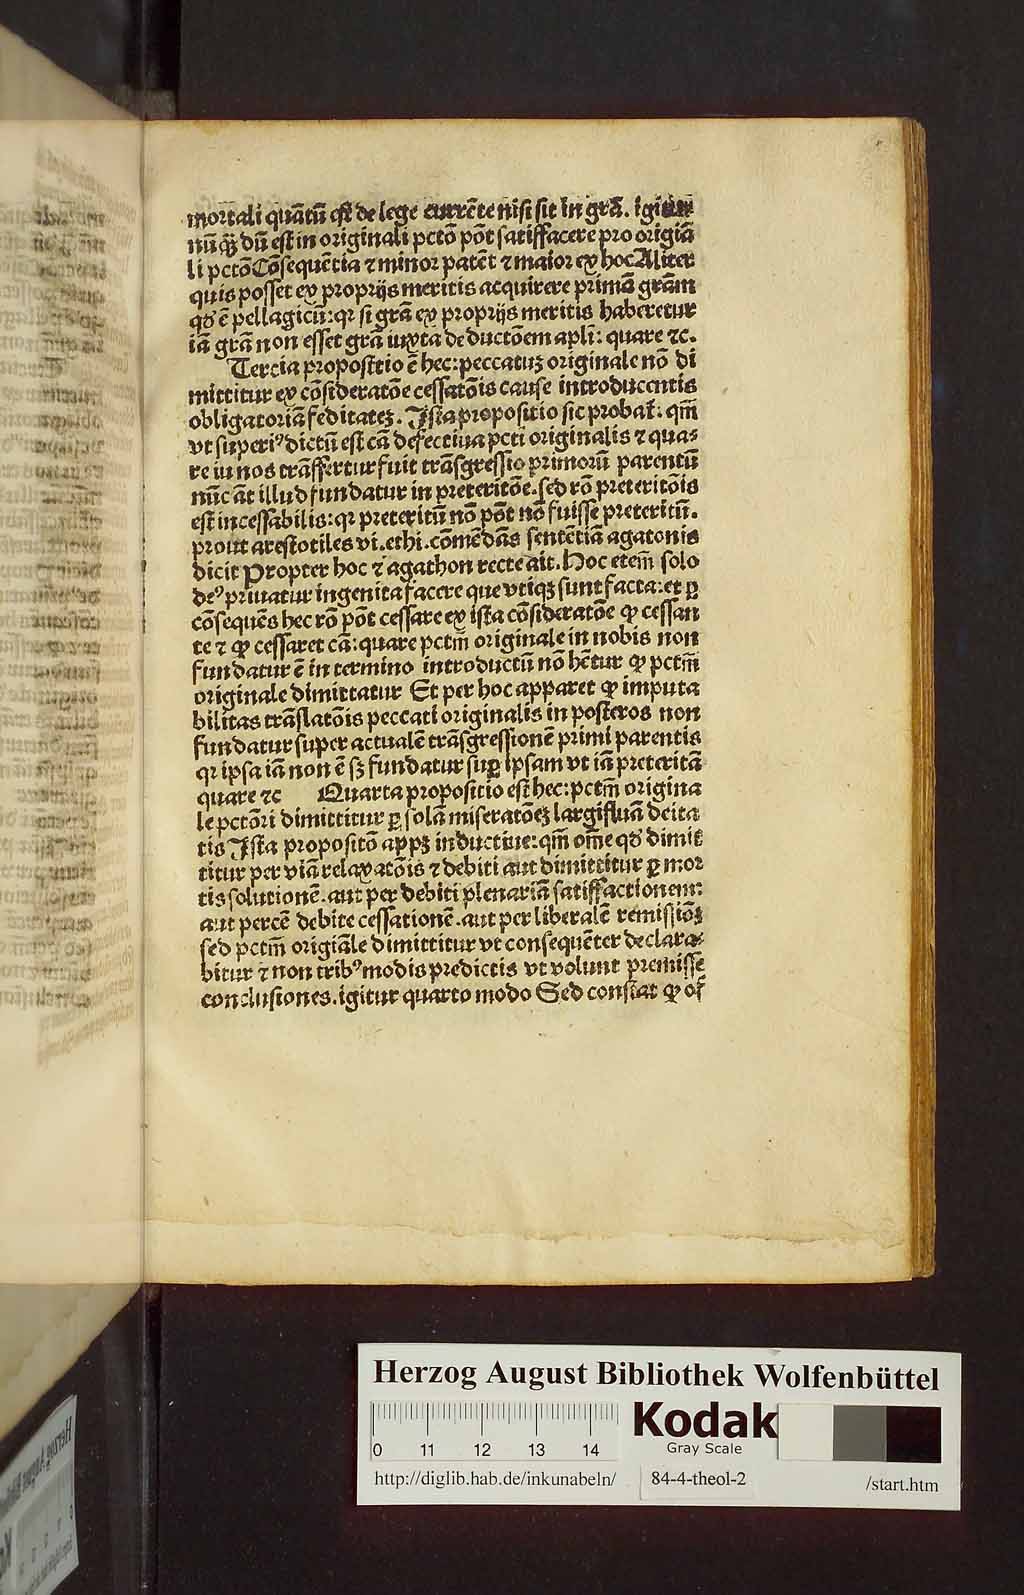 mortali quātū est de lege currēte nisi sit in grā. igitur
nūq̄ dū est in originali pctō pōt satiffacere pro origiā
li pctō Cōsequētia ⁊ minor patēt ⁊ maior ex hoc Aliter
quis posset ex proprijs meritis acquirere primā grām
qď ē pellagicū: qr si grā ex proprijs meritis haberetur
iā grā non esset grā iuxta deductōem apli: quare ⁊c.
Tercia propositio ē hec: peccatuꝫ originale nō di
mittitur ex cōsideratōe cessatōis cause introducentis
obligatoriā feditateꝫ. Ista propositio sic probat̄: qm̄
vt superiꝰ dictū est cā defectiua pcti originalis ⁊ qua⸗
re in nos trāffertur fuit trāsgressio primorū parentū
nūc āt illud fundatur in preteritōe. sed rō preteritōis
est incessabilis: qr preteritū nō pōt nō fuisse preteritū.
prout arestotiles vi. ethi. cōmēdās sentētiā agatonis
dicit Propter hoc ⁊ agathon recte ait. Hoc etem̄ solo
deꝰ priuatur ingenita facere que vtiqꝫ sunt facta: et ꝑ
cōsequēs hec rō pōt cessare ex ista cōsideratōe ꝙ cessan
te ⁊ ꝙ cessaret cā: quare pctm̄ originale in nobis non
fundatur ē in termino introductū nō hētur ꝙ pctm̄
originale dimittatur Et per hoc apparet ꝙ imputa
bilitas trāslatōis peccati originalis in posteros non
fundatur super actualē trāsgressionē primi parentis
qr ipsa iā non ē sꝫ fundatur suꝑ ipsam vt iā preteritā
quare ⁊c Quarta propositio est hec: pctm̄ origina
le pctōri dimittitur ꝑ solā miseratōeꝫ largifluā deita
tis Ista propositō appꝫ inductiue: qm̄ om̄e qď dimit
titur per viā relaxatōis ⁊ debiti aut dimittitur ꝑ mor
tis solutionē. aut per debiti plenariā satiffactionem:
aut per cē debite cessationē. aut per liberalē remissiōꝫ
sed pctm̄ origiāle dimittitur vt consequēter declara⸗
bitur ⁊ non tribꝰ modis predictis vt volunt premisse
conclusiones. igitur quarto modo Sed constat ꝙ oī
Herzog August Bibliothek Wolfenbüttel
0 11 12 13 14
Kodak
Gray Scale
http://diglib.hab.de/inkunabeln/ 84-4-theol-2 /start.htm